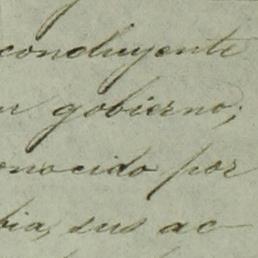 concluyente
gobierno;
onocido por
bia, sus ac-